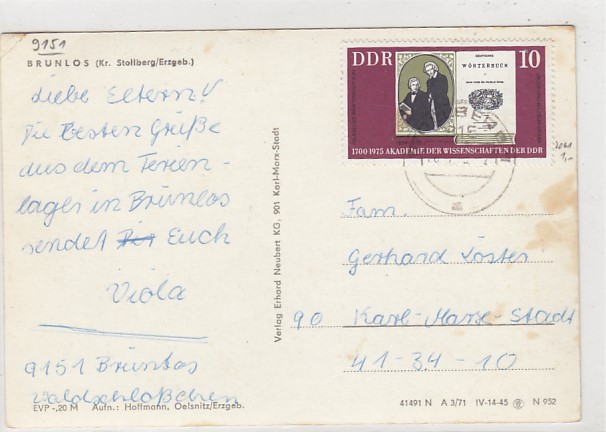 9151
BRÜNLOS (Kr. Stollberg/Erzgeb.)
Liebe Eltern!
Die besten Grüße
aus dem Ferien-
lager in Brünlos
sendet Euch
Viola
9151 Brünlos
Waldschlößchen
EVP -,20 M Aufn.: Hoffmann, Oelsnitz/Erzgeb.
Verlag Erhard Neubert KG, 901 Karl-Marx-Stadt
DDR 10
DEUTSCHES
WÖRTERBUCH
1700-1975 AKADEMIE DER WISSENSCHAFTEN DER DDR
Fam.
Gerhard Löster
90 Karl-Marx-Stadt
41-34-10
41491 N A 3/71 IV-14-45 N 952